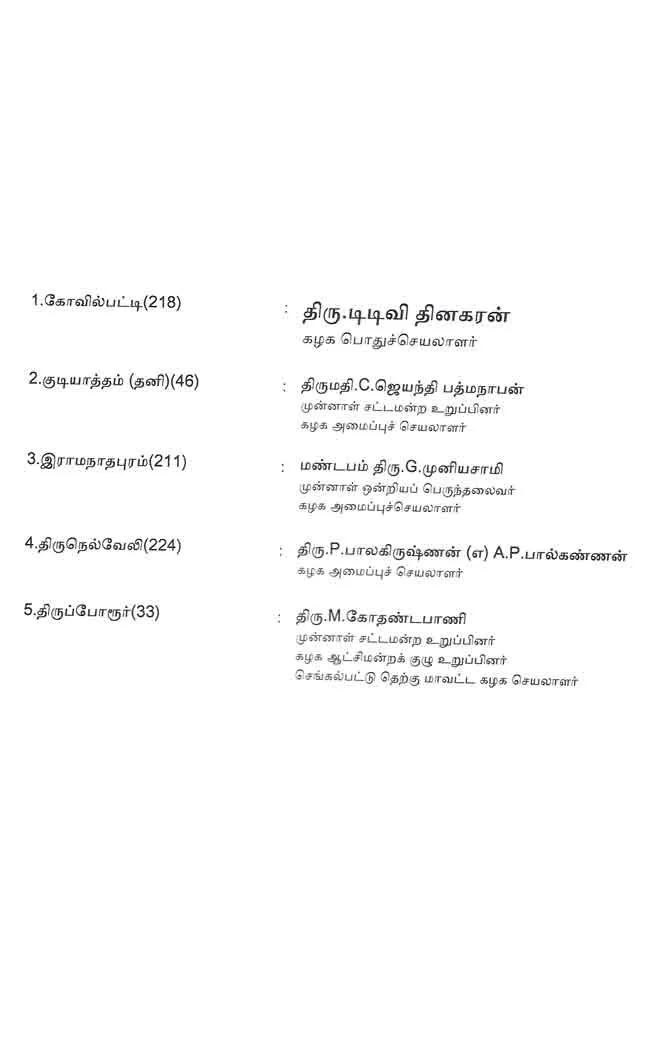 1.கோவில்பட்டி(218) : திரு.டிடிவி தினகரன்
கழக பொதுச்செயலாளர்
2.குடியாத்தம் (தனி)(46) : திருமதி.C.ஜெயந்தி பத்மநாபன்
முன்னாள் சட்டமன்ற உறுப்பினர்
கழக அமைப்புச் செயலாளர்
3.இராமநாதபுரம்(211) : மண்டபம் திரு.G.முனியசாமி
முன்னாள் ஒன்றியப் பெருந்தலைவர்
கழக அமைப்புச்செயலாளர்
4.திருநெல்வேலி(224) : திரு.P.பாலகிருஷ்ணன் (எ) A.P.பால்கண்ணன்
கழக அமைப்புச் செயலாளர்
5.திருப்போரூர்(33) : திரு.M.கோதண்டபாணி
முன்னாள் சட்டமன்ற உறுப்பினர்
கழக ஆட்சிமன்றக் குழு உறுப்பினர்
செங்கல்பட்டு தெற்கு மாவட்ட கழக செயலாளர்